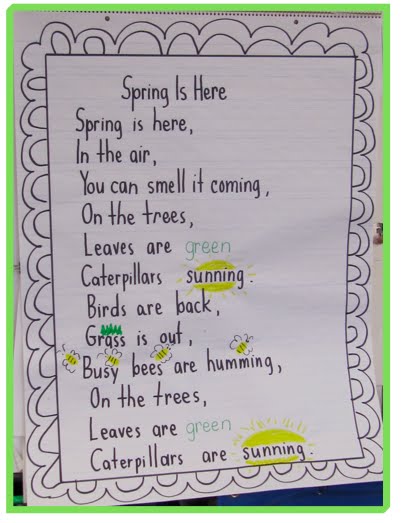 Spring Is Here
Spring is here,
In the air,
You can smell it coming,
On the trees,
Leaves are green
Caterpillars sunning.
Birds are back,
Grass is out,
Busy bees are humming,
On the trees,
Leaves are green
Caterpillars are sunning.